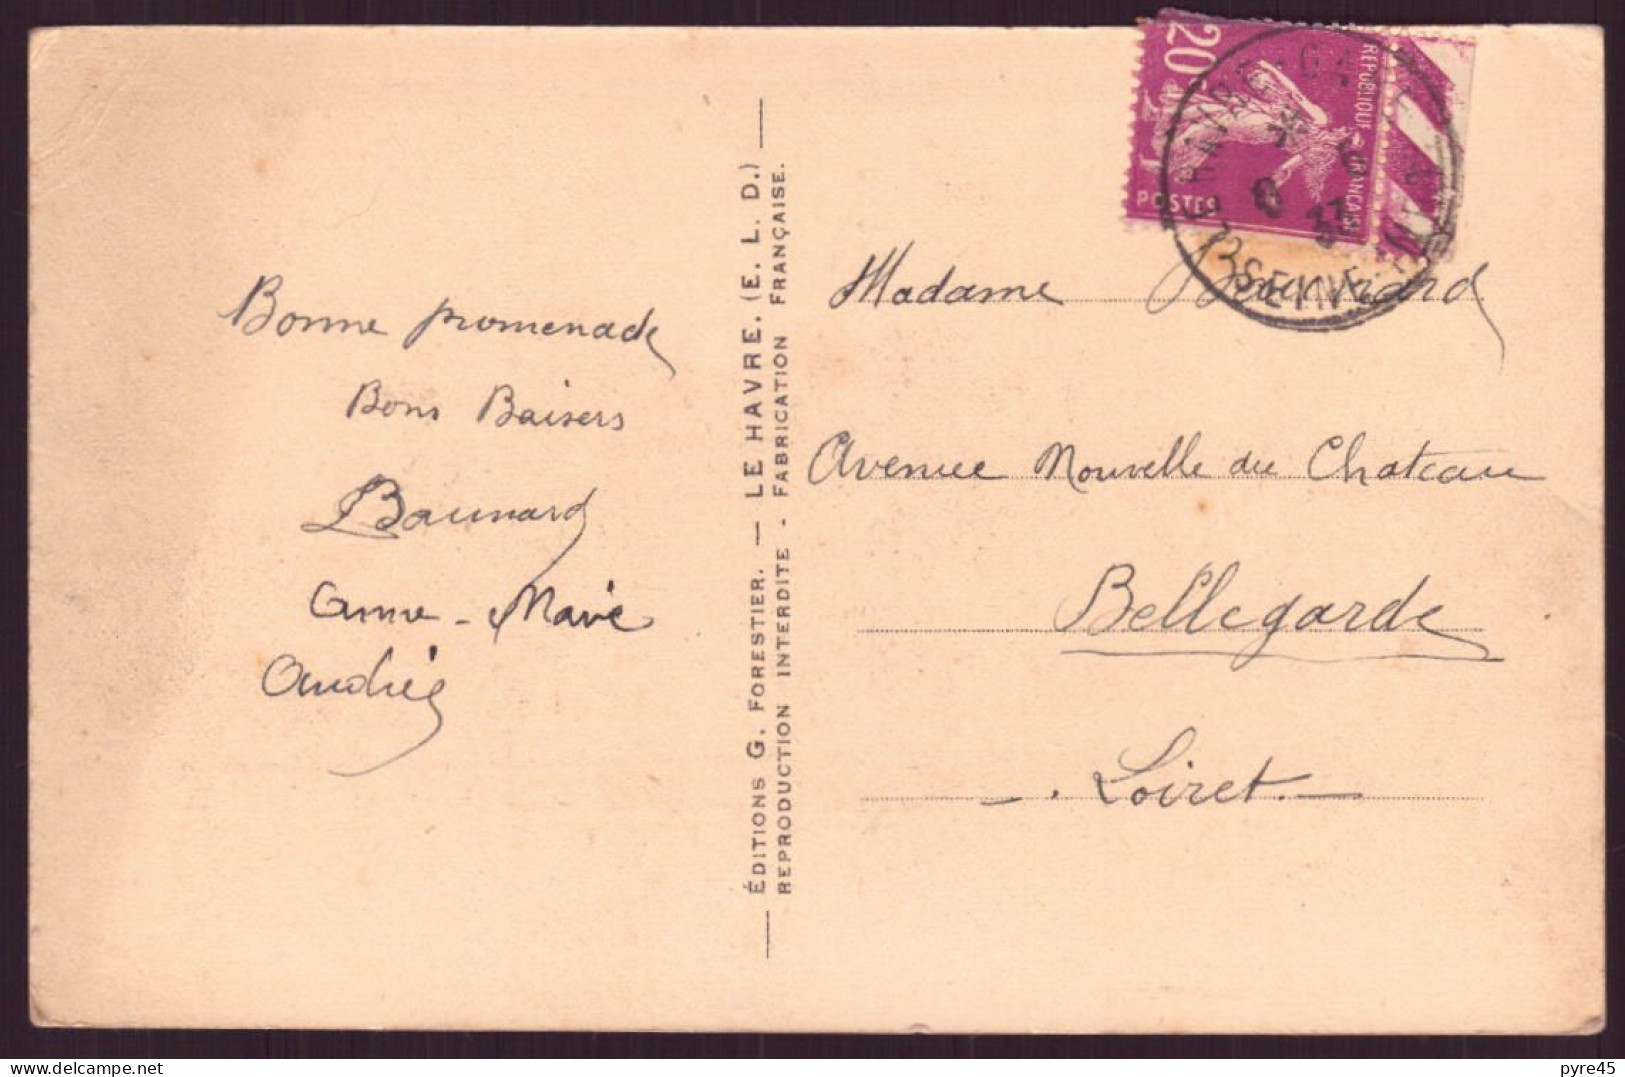 Bonne promenade
Bons Baisers
Baunard
Anne-Marie
Andrée
ÉDITIONS G. FORESTIER. — LE HAVRE. (E. L. D.)
REPRODUCTION INTERDITE - FABRICATION FRANÇAISE.
20c
REPUBLIQUE FRANCAISE
POSTES
LE HAVRE-GARE
* 6
6 37
SEINE-INFRE
Madame
Avenue Nouvelle du Chateau
Bellegarde
Loiret
delcampe.net
pyre45